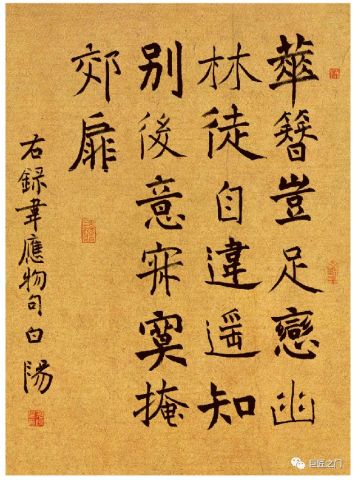 華簪豈足戀幽
林徒自違遥知
別後意寂寞掩
郊扉
右録韋應物句白湯
巨匠之门